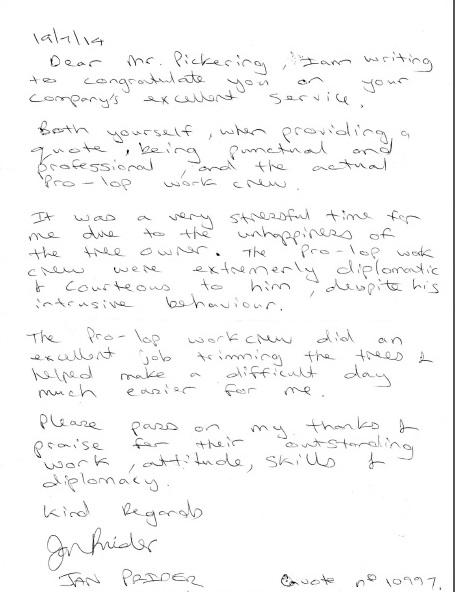 19/7/14
Dear Mr. Pickering, I am writing
to congratulate you on your
company's excellent service.
Both yourself, when providing a
quote, being punctual and
professional, and the actual
Pro-lop work crew.
It was a very stressful time for
me due to the unhappiness of
the tree owner. The Pro-lop work
crew were extremerly diplomatic
& courteous to him, despite his
intrusive behaviour.
The Pro-lop work crew did an
excellent job trimming the trees &
helped make a difficult day
much easier for me.
Please pass on my thanks &
praise for their outstanding
work, attitude, skills &
diplomacy.
Kind Regards
Jan Prider
JAN PRIDER Quote nº 10997.